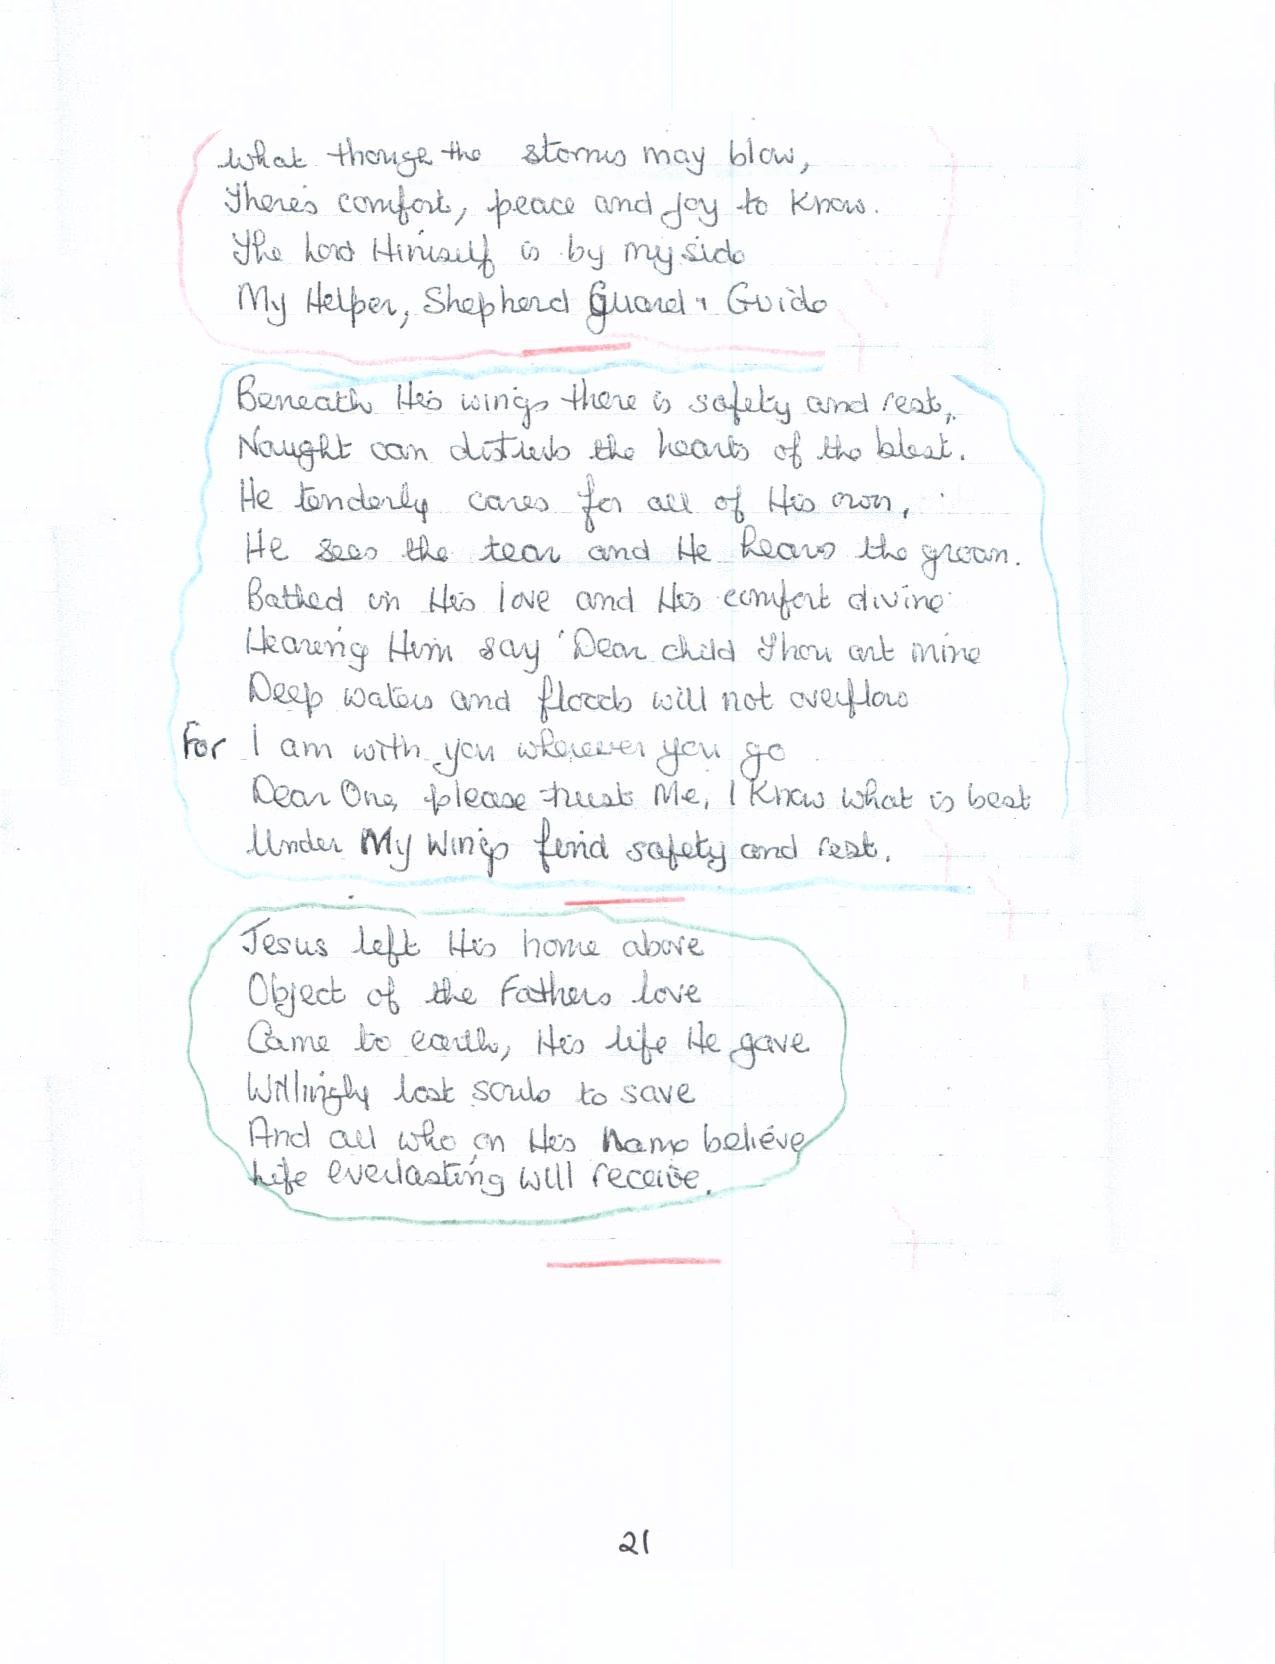 What though the storms may blow,
There's comfort, peace and joy to know.
The Lord Himself is by my side
My Helper, Shepherd Guard + Guide
Beneath His wings there is safety and rest,
Naught can disturb the hearts of the blest.
He tenderly cares for all of His own,
He sees the tear and He hears the groan.
Bathed in His love and His comfort divine
Hearing Him say 'Dear child Thou art mine
Deep waters and floods will not overflow
For I am with you wherever you go
Dear One, please trust Me, I know what is best
Under My Wings find safety and rest.
Jesus left His home above
Object of the Fathers love
Came to earth, His life He gave
Willingly lost souls to save
And all who on His Name believe
Life everlasting will receive.
21